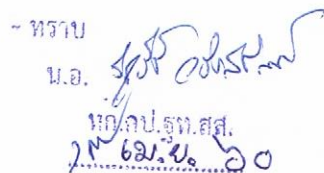 - ทราบ
น.อ.
หก.กป.ฐท.สส.
๑๙ เม.ย. ๖๐